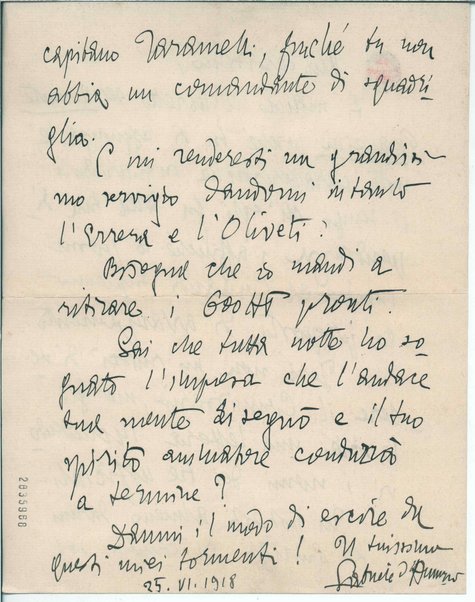 capitano Taramelli, finché tu non
abbia un comandante di squadri-
glia.
E mi renderesti un grandissi-
mo servigio dandomi intanto
l'Errera e l'Oliveti.
Bisogna che io mandi a
ritirare i 600HP pronti.
Sai che tutta notte ho so-
gnato l'impresa che l'audace
tua mente disegnò e il tuo
spirito animatore condurrà
a termine?
Dammi il modo di escire da
questi miei tormenti! Il tuissimo
Gabriele d'Annunzio
25. VI. 1918
2835968